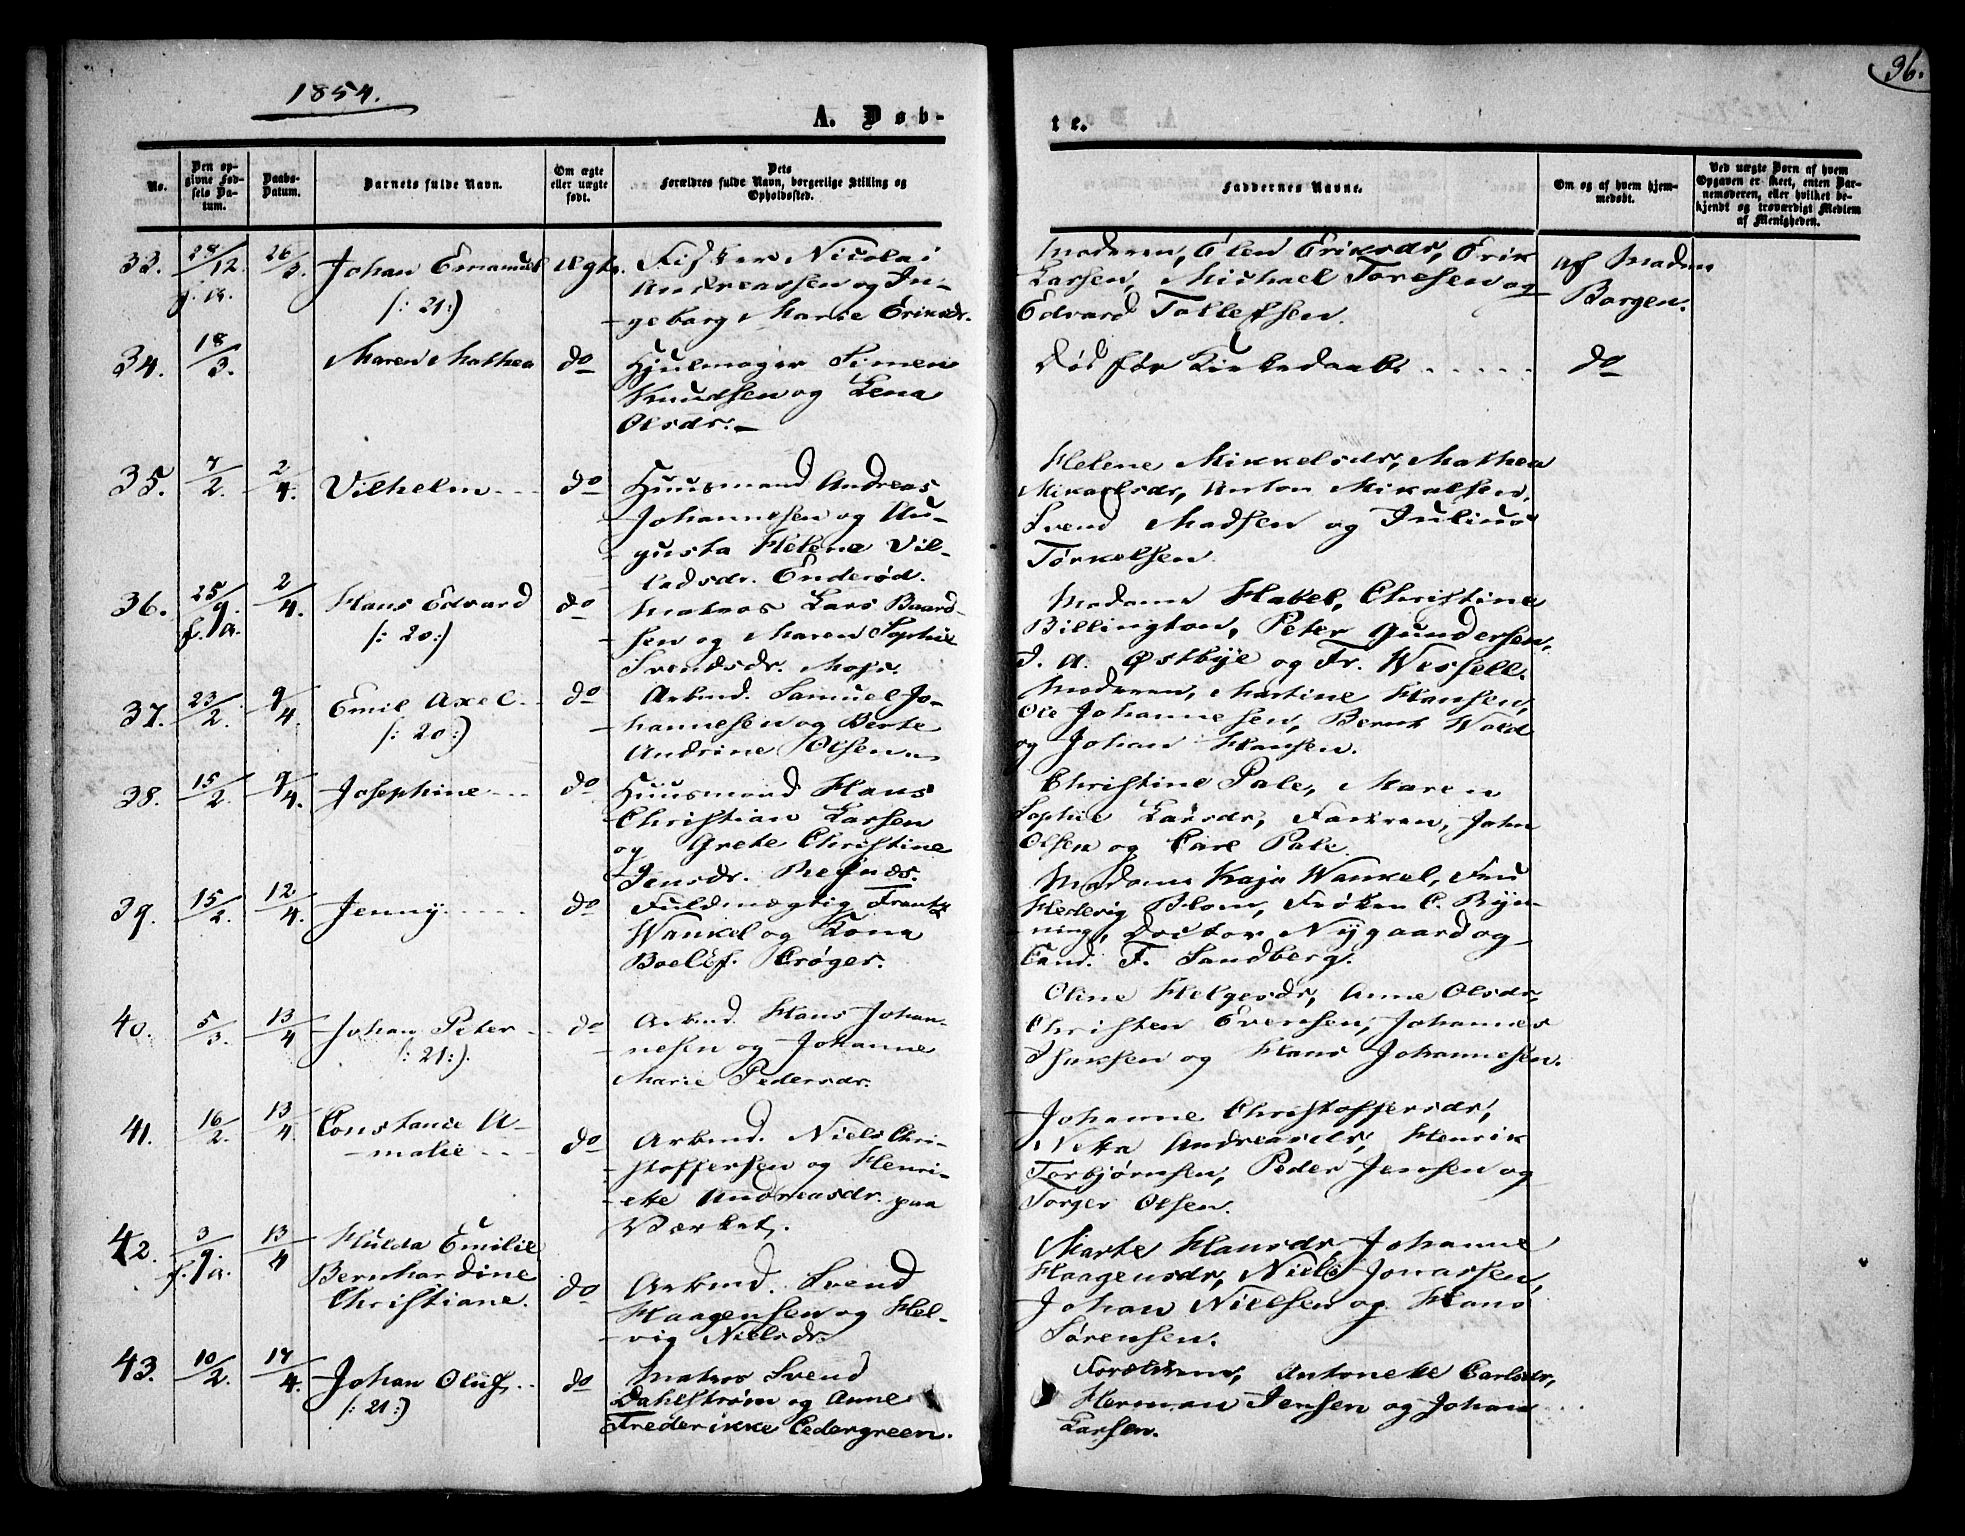 1854.
36.
A. Døb-
te.
No.
Den op-
givne Fød-
sels Da-
tum.
Daabs-
Datum.
Barnets fulde Navn.
Om ægte
eller uægte
født.
Dets
Forældres fulde Navn, borgerlige Stilling og
Opholdssted.
Faddernes Navne.
Om og af hvem hjem-
medøbt.
Ved uægte Børn af hvem
Opgaven er skeet, enten Bar-
nemoderen, eller hvilket be-
kjendt og troværdigt Medlem
af Menigheden.
33. 28/12 f. A. 26/3. Johan Emanuel
(: 21:)
Ægte.
Fisker Nicolai
Andreassen og In-
geborg Marie Eriksdr.
Moderen, Elen Eriksdr, Erik
Larsen, Michael Toresen og
Edvard Tollefsen.
af Madm
Borgen.
34. 18/3. Maren Mathea do
Hjulmager Simen
Knudsen og Lena
Olsdr.
Død før Kirkedaab. do
35. 7/2. 2/4. Vilhelm do
Huusmand Andreas
Johannesen og Au-
gusta Helene Vil-
ladsdr. Enderød.
Helene Mikkelsdr, Mathea
Mikaelsdr, Anton Mikalsen,
Svend Madsen og Julius
Tørkelsen.
36. 25/9. f. A. 2/4. Hans Edvard
(: 20:)
do
Matros Lars Baard-
sen og Maren Sophie
Svendsdr. Moss.
Madame Habel, Christine
Billington, Peter Gundersen,
J. A. Østbye og Fr. Wessell.
37. 23/2. 9/4. Emil Axel
(: 20:)
do
Arbmd. Samuel Jo-
hannesen og Berte
Andrine Olsen
Moderen, Martine Hansen,
Ole Johannesen, Bernt Wold
og Johan Hansen.
38. 15/2. 9/4. Josephine do
Huusmand Hans
Christian Larsen
og Grete Christine
Jensdr. Refsnæs.
Christine Pale, Maren
Sophie Larsdr, Faderen, John
Olsen og Carl Pale.
39. 15/2. 12/4. Jenny do
Fuldmægtig Frantz
Wankel og Lona
Boelef. Crøger.
Madame Kaja Wankel, Fru
Hedevig Blom, Frøken C. Byn-
ning, Doctor Nygaard og
Cand. F. Sandberg.
40. 5/3. 13/4 Johan Peter
(: 21:).
do
Arbmd. Hans Johan-
nesen og Johanne
Marie Pedersdr.
Oline Helgesdr, Anne Olsdr,
Christen Evensen, Johannes
Isaksen og Hans Johannesen.
41. 16/2. 13/4. Constance A-
malie
do
Arbmd. Niels Chri-
stoffersen og Henri-
ette Andreasdr. paa
Værket.
Johanne Christoffersdr,
Netta Andreasdr, Henrik
Torbjørnsen, Peder Jensen og
Torger Olsen.
42. 3/9. f. A. 13/4 Hulda Emilie
Bernhardine
Christiane.
do
Arbmd. Svend
Haagensen og Hel-
vig Nielsdr.
Marte Hansdr, Johanne
Haagensdr, Niels Jonassen,
Johan Nielsen og Hans
Sørensen.
43. 10/2. 17/4. Johan Oluf
(: 21:)
do
Matros Svend
Dahlstrøm og Anne
Frederikke Cedergreen.
Forældrene, Antonette Carlsdr,
Herman Jensen og Johan
Larsen.